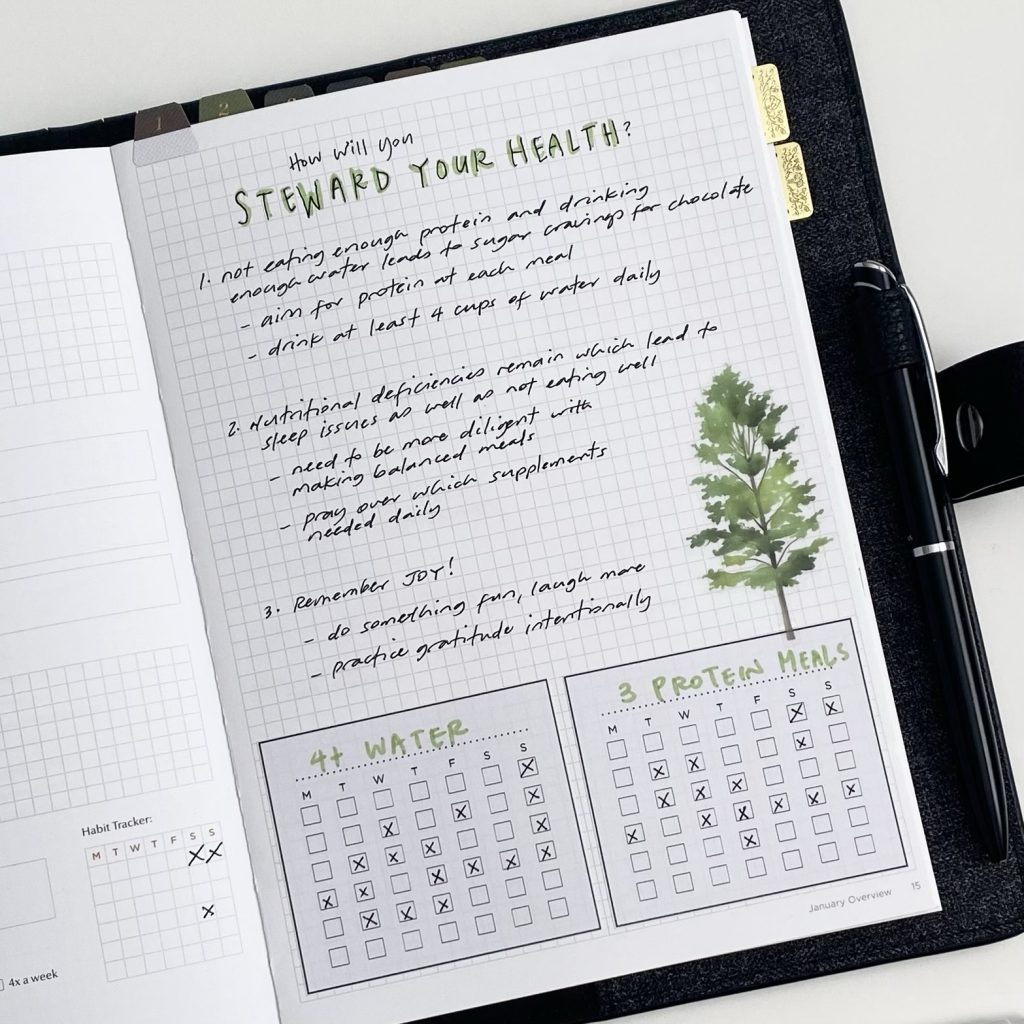 1
2
How Will You
STEWARD YOUR HEALTH?
1. not eating enough protein and drinking
enough water leads to sugar cravings for chocolate
- aim for protein at each meal
- drink at least 4 cups of water daily
2. Nutritional deficiencies remain which lead to
sleep issues as well as not eating well
- need to be more diligent with
making balanced meals
- pray over which supplements
needed daily
3. Remember JOY!
- do something fun, laugh more
- practice gratitude intentionally
4+ WATER
M T W T F S S
3 PROTEIN MEALS
M T W T F S S
January Overview 15
Habit Tracker:
M T W T F S S
4x a week